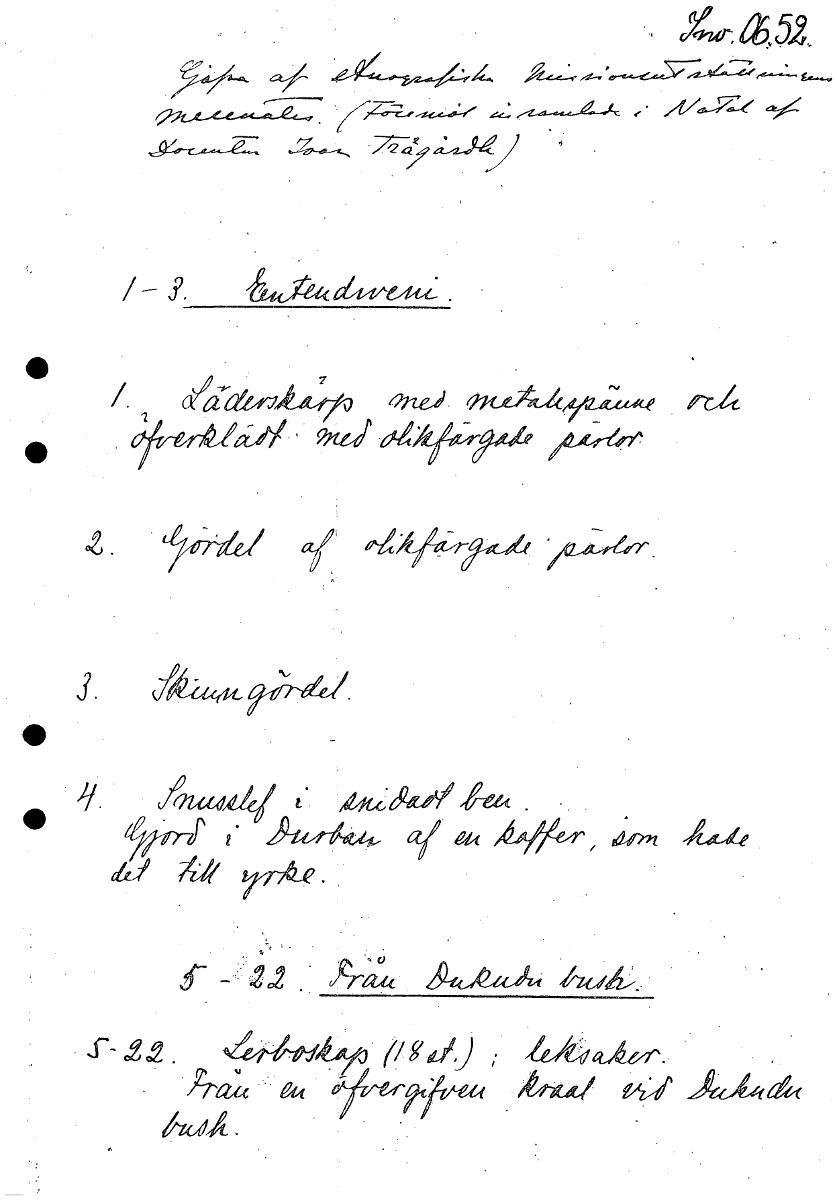 Inv. 06.52.
Gåfva af etnografiska Missionsutställningens
mecenater. (Föremål insamlade i Natal af
Docenten Ivar Trägårdh)
1-3. Entendweni.
1. Läderskärp med metallspänne och
öfverklädt med olikfärgade pärlor
2. Gördel af olikfärgade pärlor.
3. Skinngördel.
4. Snusslef i snidadt ben.
Gjord i Durban af en kaffer, som hade
det till yrke.
5-22. Från Dukudu bush.
5-22. Lerboskap (18 st.); leksaker.
Från en öfvergifven kraal vid Dukudu
bush.